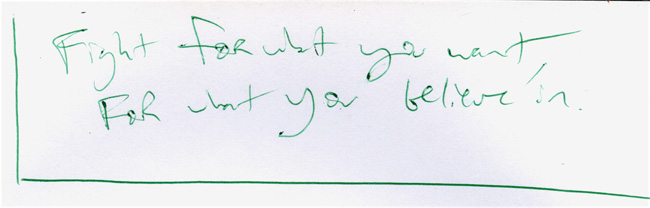 Fight for what you want,
For what you believe in.